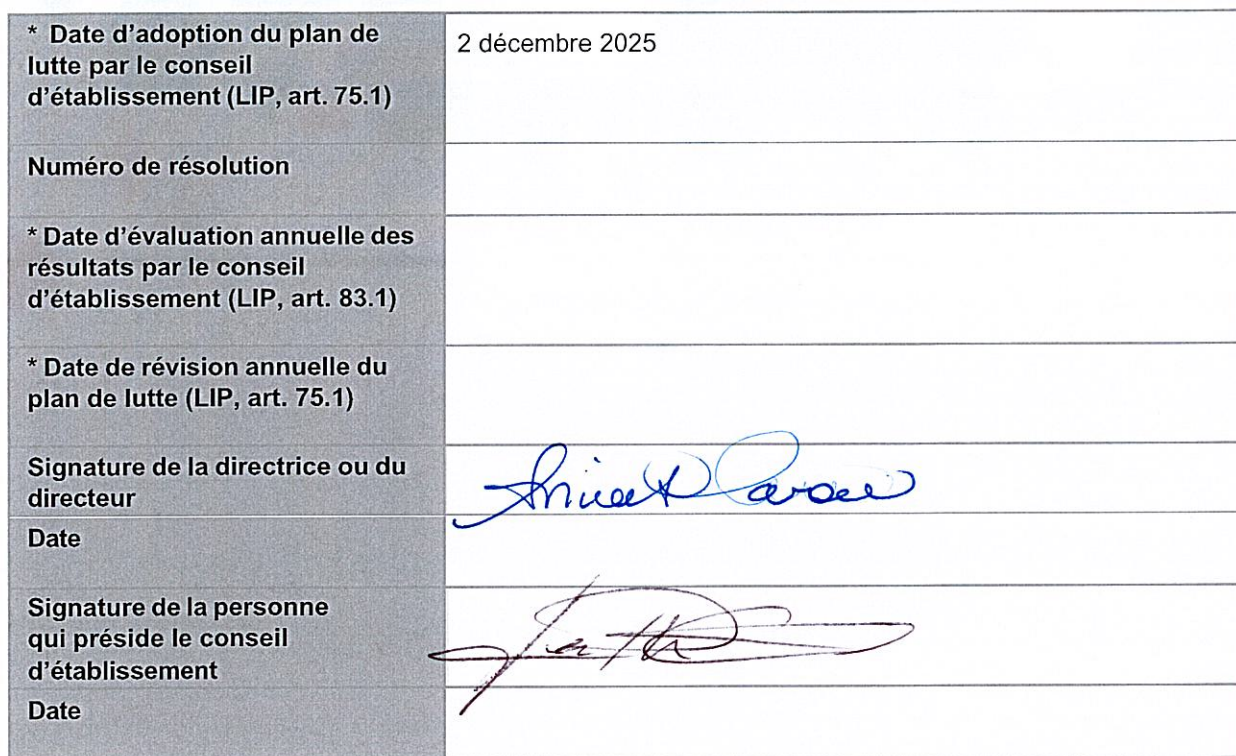 * Date d'adoption du plan de
lutte par le conseil
d'établissement (LIP, art. 75.1)
2 décembre 2025
Numéro de résolution
* Date d'évaluation annuelle des
résultats par le conseil
d'établissement (LIP, art. 83.1)
* Date de révision annuelle du
plan de lutte (LIP, art. 75.1)
Signature de la directrice ou du
directeur
Date
Signature de la personne
qui préside le conseil
d'établissement
Date